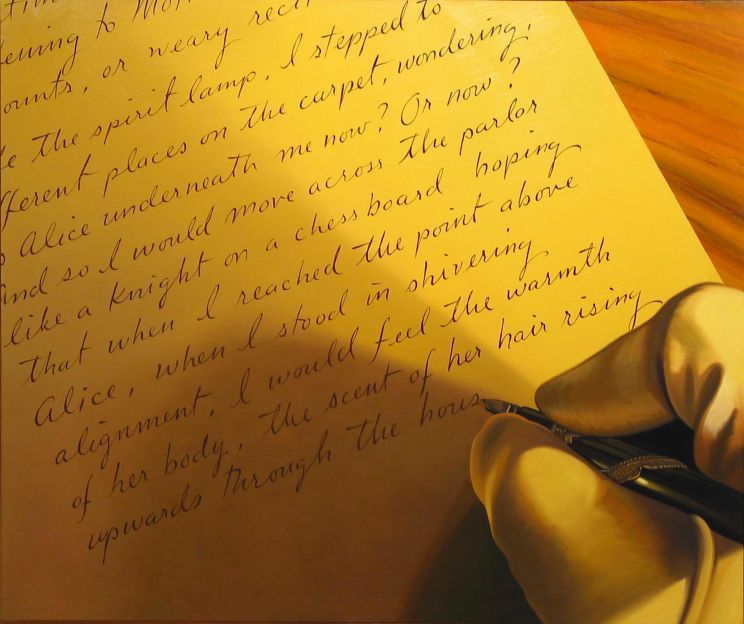 to
ounts, or weary
the spirit lamp, I stepped to
fferent places on the carpet, wondering,
Alice underneath me now? Or now?
And so I would move across the parlor
like a knight on a chessboard hoping
that when I reached the point above
Alice, when I stood in shivering
alignment, I would feel the warmth
of her body, the scent of her hair rising
upwards through the hous